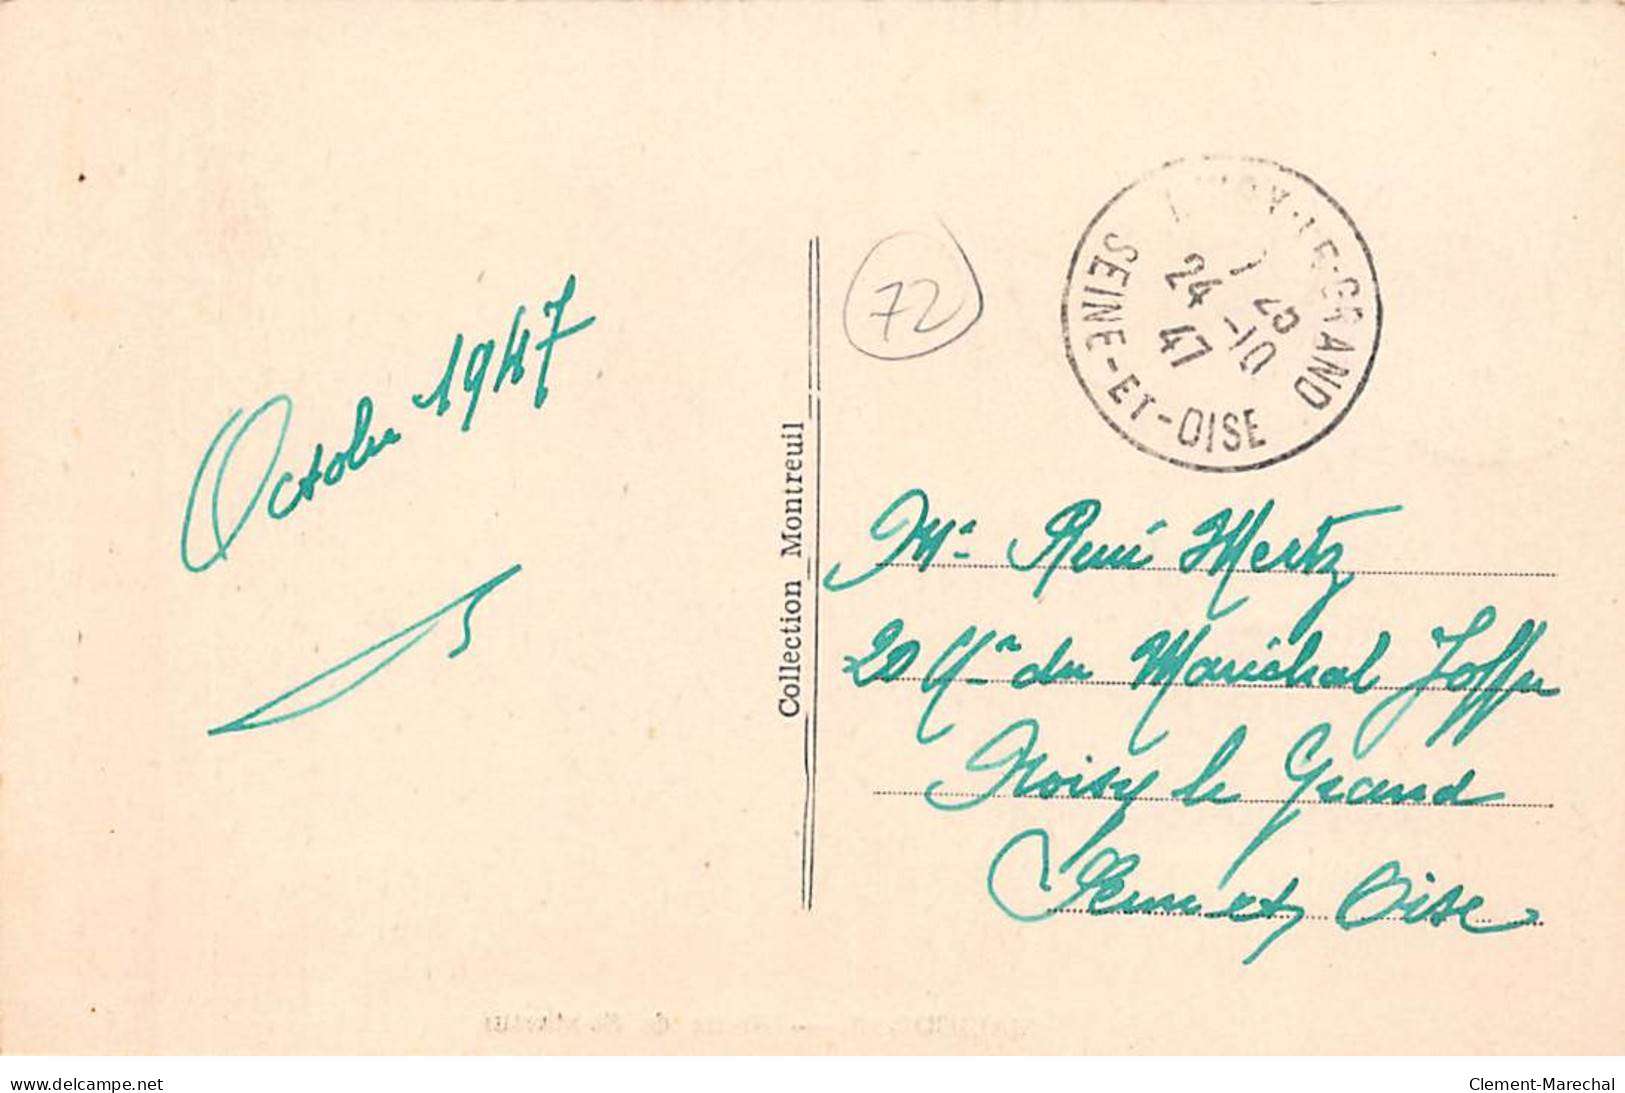 Octobre 1947
Collection Montreuil
72
NOISY-LE-GRAND
SEINE-ET-OISE
24 -10
47
Mr René Mertz
20 du Maréchal Joffre
Noisy le Grand
Seine et Oise
www.delcampe.net
Clement-Marechal